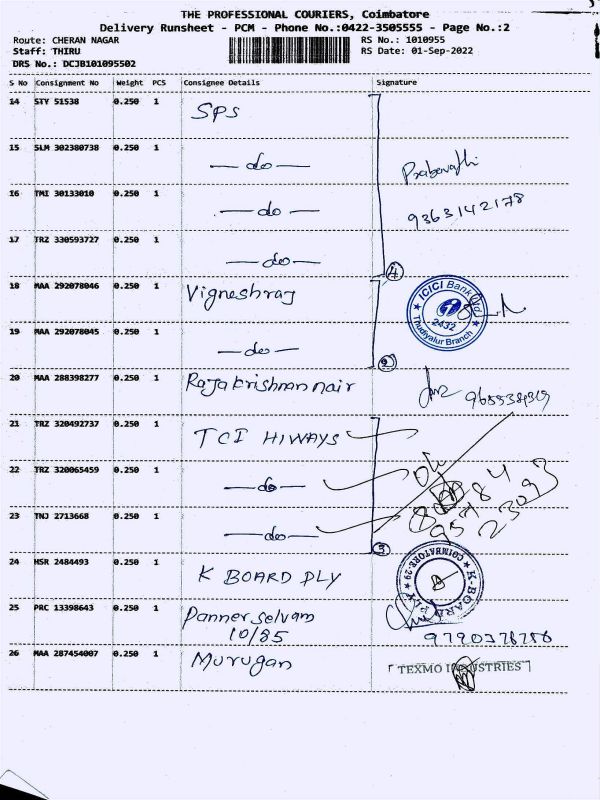 THE PROFESSIONAL COURIERS, Coimbatore
Delivery Runsheet - PCM - Phone No.:0422-3505555 - Page No.:2
Route: CHERAN NAGAR
RS No.: 1010955
Staff: THIRU
RS Date: 01-Sep-2022
DRS No.: DCJB101095502
S No Consignment No Weight PCS Consignee Details Signature
14 STY 51538 0.250 1 SPS
15 SLM 302380738 0.250 1 — do —
Prabavathi
16 TMI 30133010 0.250 1 — do —
9363142178
17 TRZ 330593727 0.250 1 — do —
4
18 MAA 292078046 0.250 1 Vigneshraj
ICICI Bank Ltd
2432
Thudiyalur Branch
19 MAA 292078045 0.250 1 — do —
2
20 MAA 288398277 0.250 1 Rajakrishnan nair
21 TRZ 320492737 0.250 1 TCI HIWAYS
22 TRZ 320065459 0.250 1 — do —
23 TNJ 2713668 0.250 1 — do —
95784
23093
3
24 HSR 2484493 0.250 1 K BOARD PLY
K-BOARD PLY
COIMBATORE-29
25 PRC 13398643 0.250 1 Panner Selvam
10/85
26 MAA 287454007 0.250 1 Murugan
TEXMO INDUSTRIES